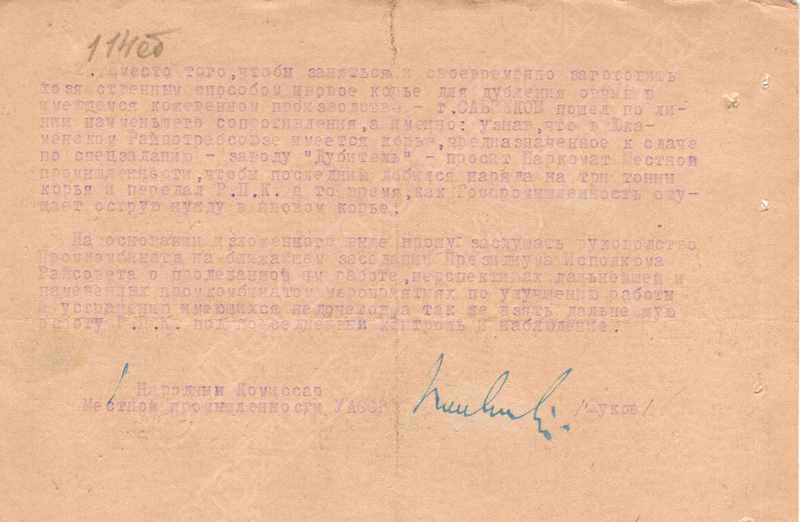 114об
2. Вместо того, чтобы заняться и своевременно заготовить
хозяйственным способом ивовое корье для дубления овчин в
имеющемся кожевенном производстве - т. САБРЕКОВ пошел по ли-
нии наименьшего сопротивления, а именно: Узнав, что в Юка-
менском Райпотребсоюзе имеется корье, предназначенное к сдаче
по спецзаданию - заводу "Дубитель" - просит Наркомат Местной
промышленности, чтобы последний добился наряда на три тонны
корья и передал Р.П.К. в то время, как Госпромышленность ощу-
щает острую нужду в ивовом корье.
На основании изложенного выше прошу заслушать руководство
Промкомбината на ближайшем заседании Президиума Исполкома
Райсовета о проделанной им работе, перспективах дальнейшей и
намеченных промкомбинатом мероприятиях по улучшению работы
и устранению имеющихся недочетов, а так же взять дальнейшую
работу Р.П.К. под повседневный контроль и наблюдение.
Народный Комиссар
Местной промышленности УАССР /Жуков/